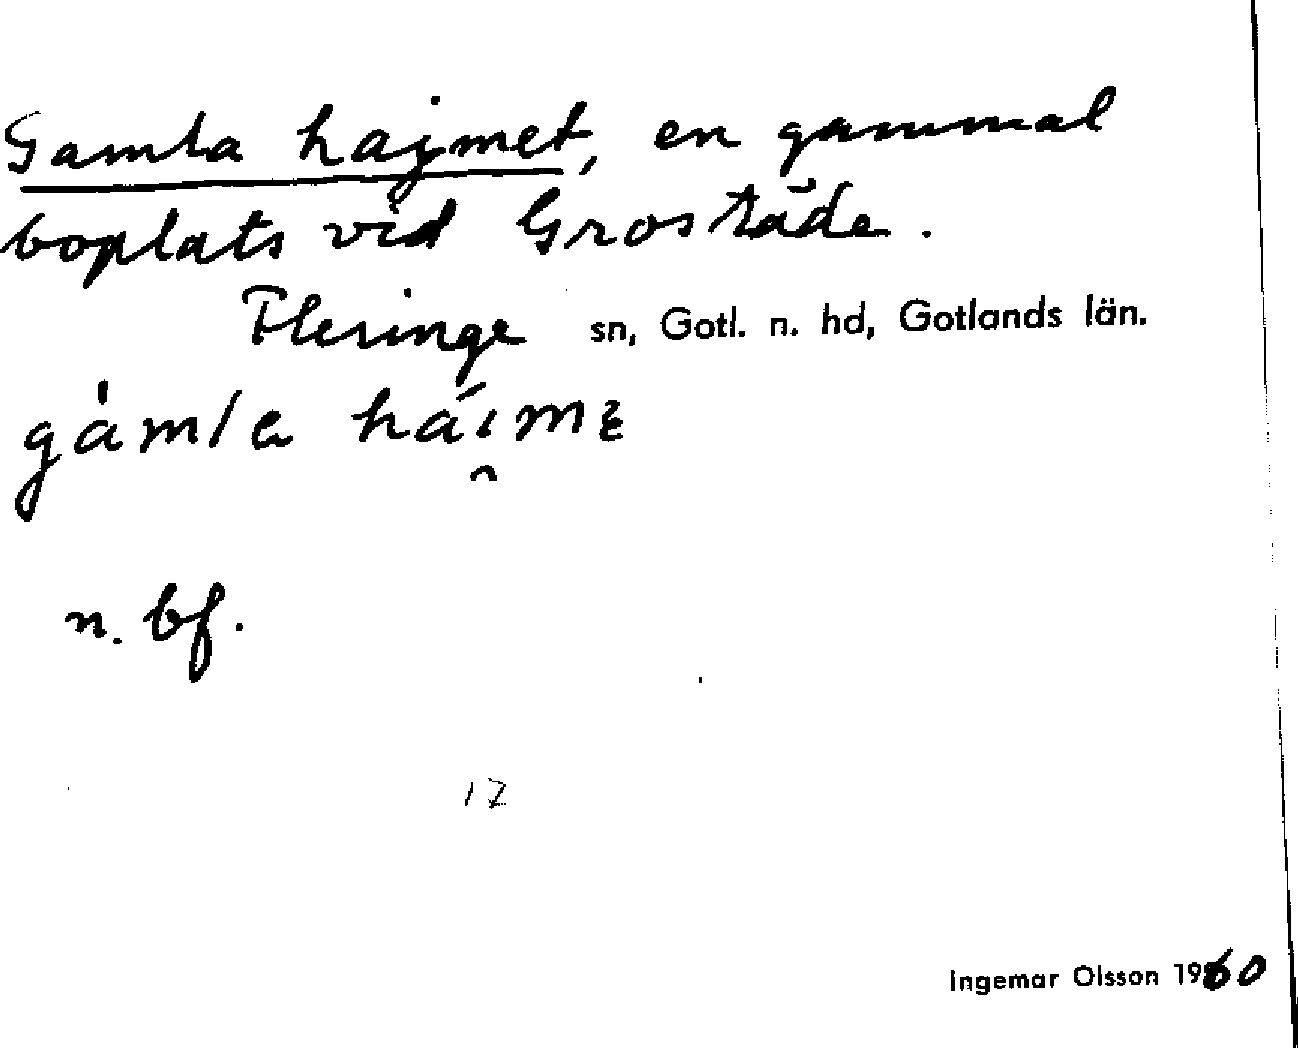 Gamla hajmet, en gammal
boplats vid Grostäde.
Fleringe sn, Gotl. n. hd, Gotlands län.
gàmla hái̯mɛ
n. bf.
17
Ingemar Olsson 1960